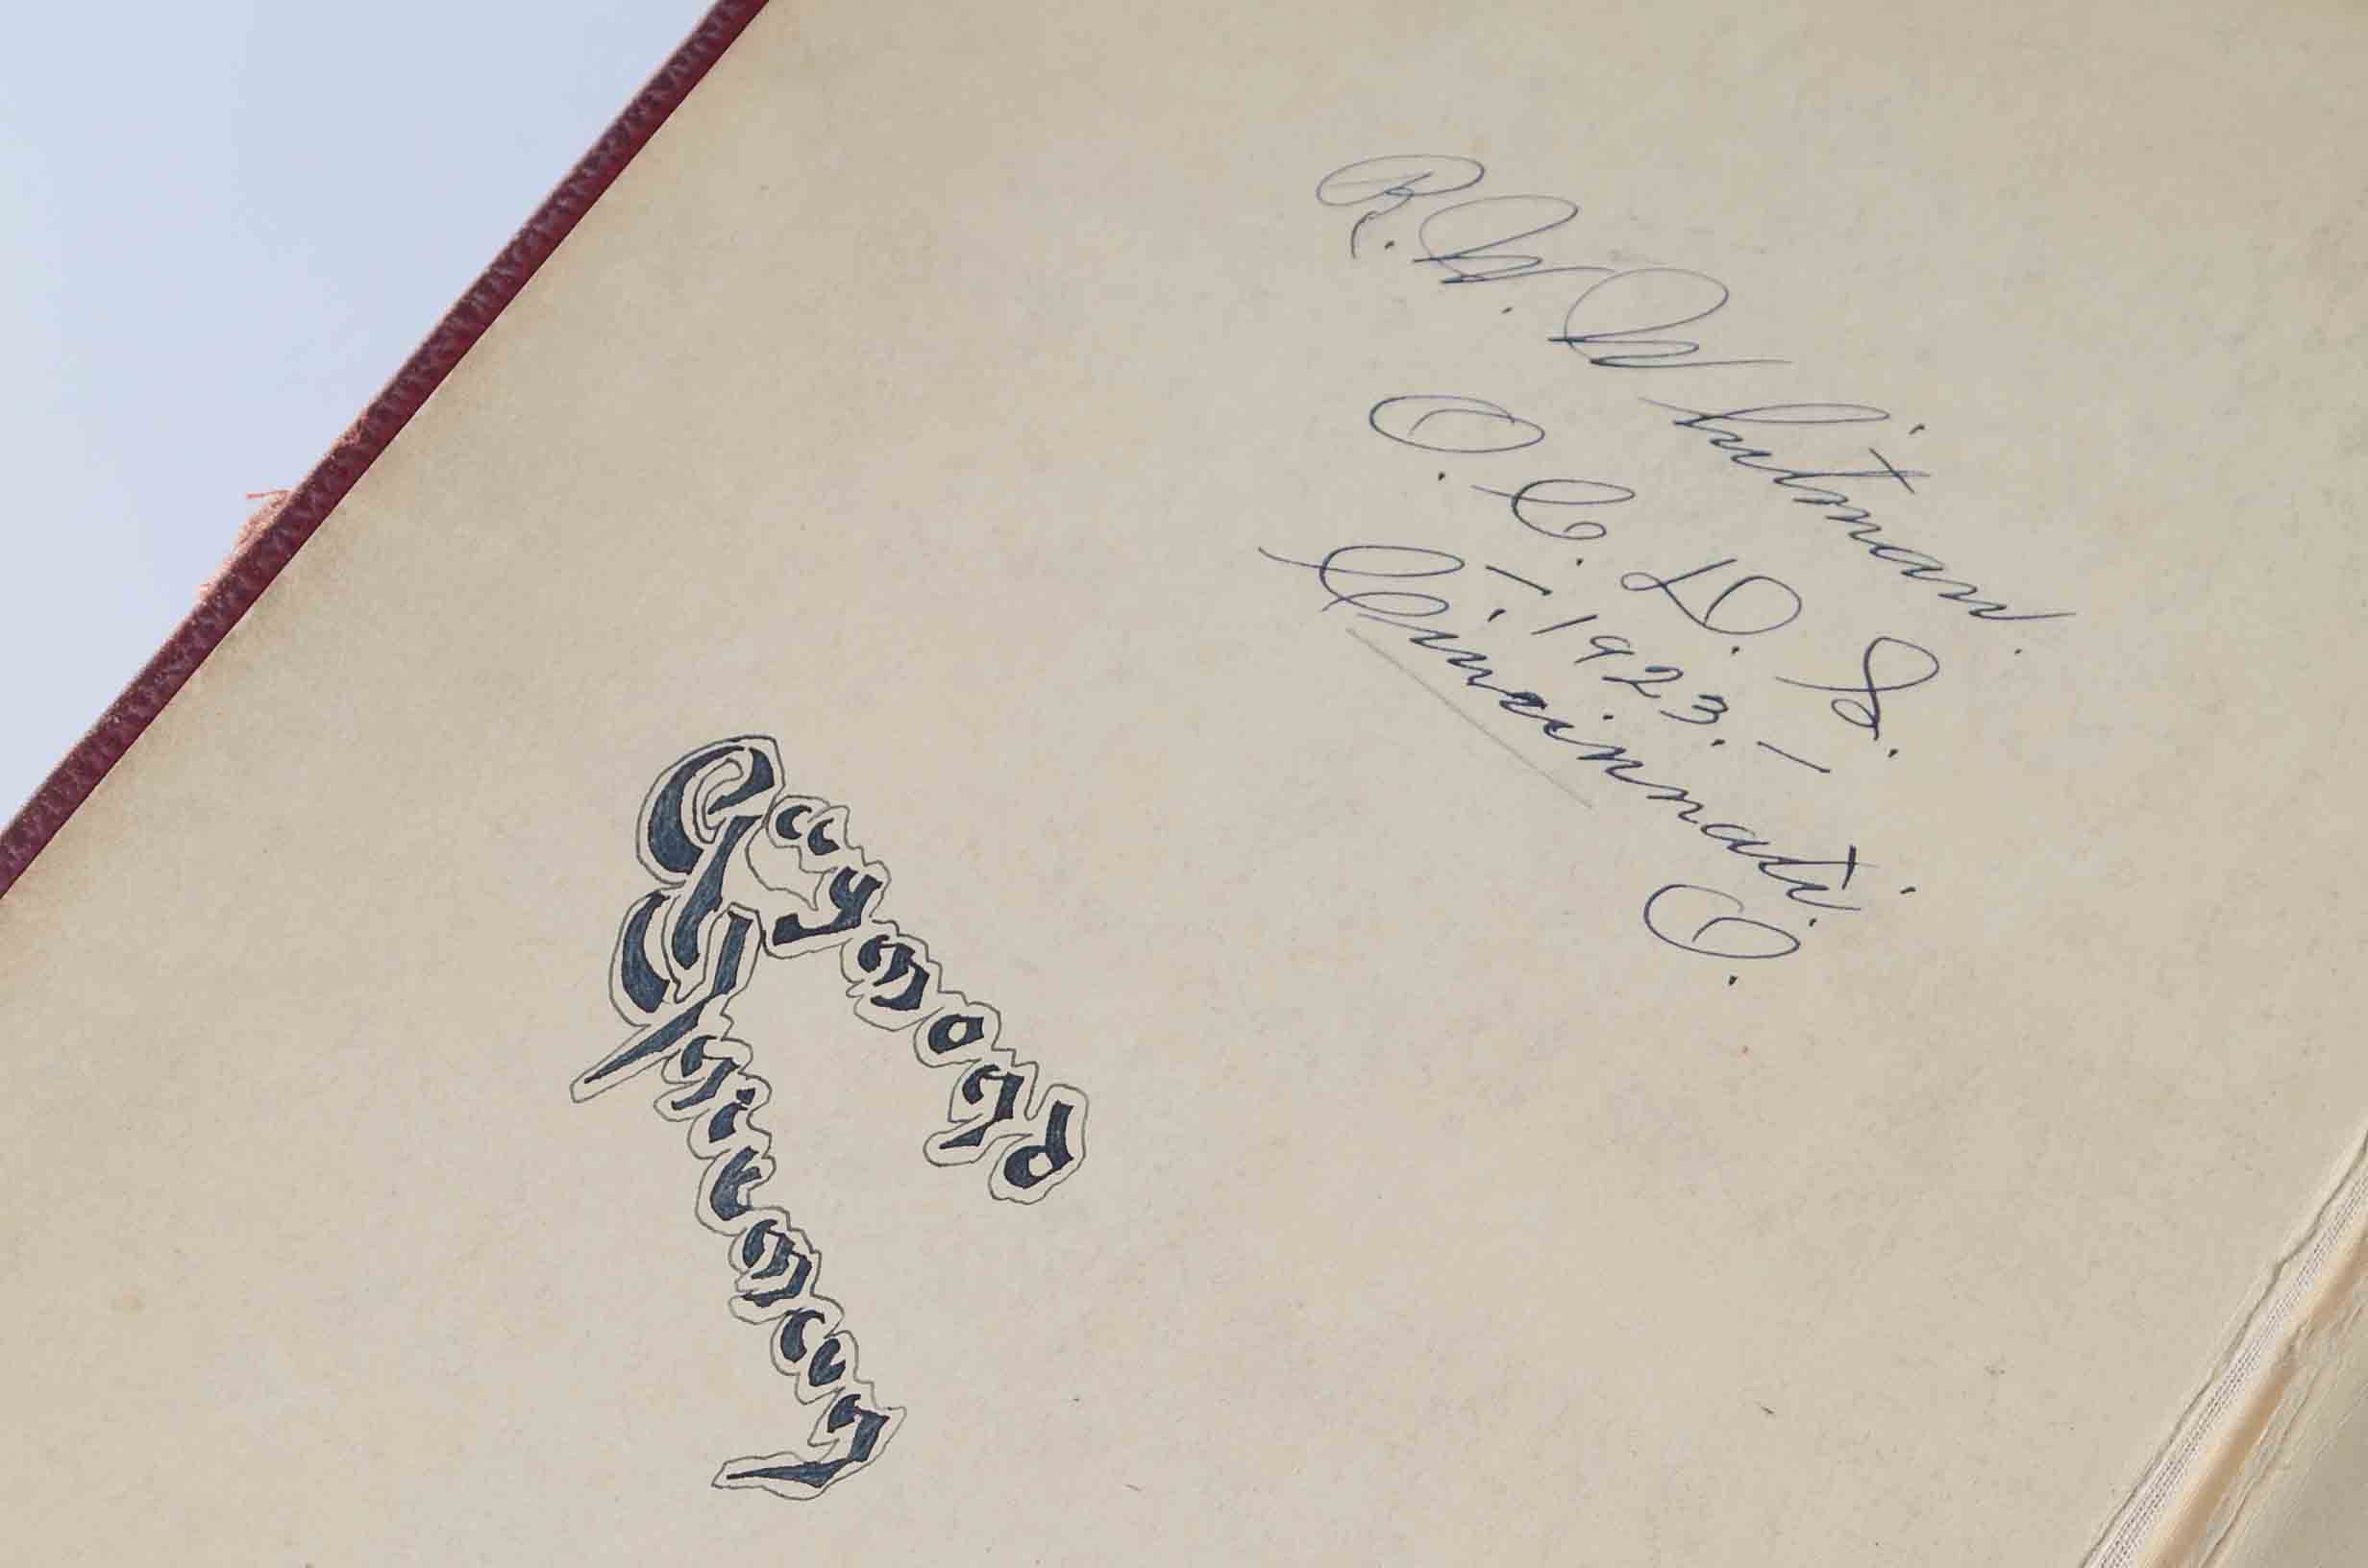 R. W. Whitman.
O. C. D. S.
-. 1923. -
Cincinnati. O.
Raymond
Whitman